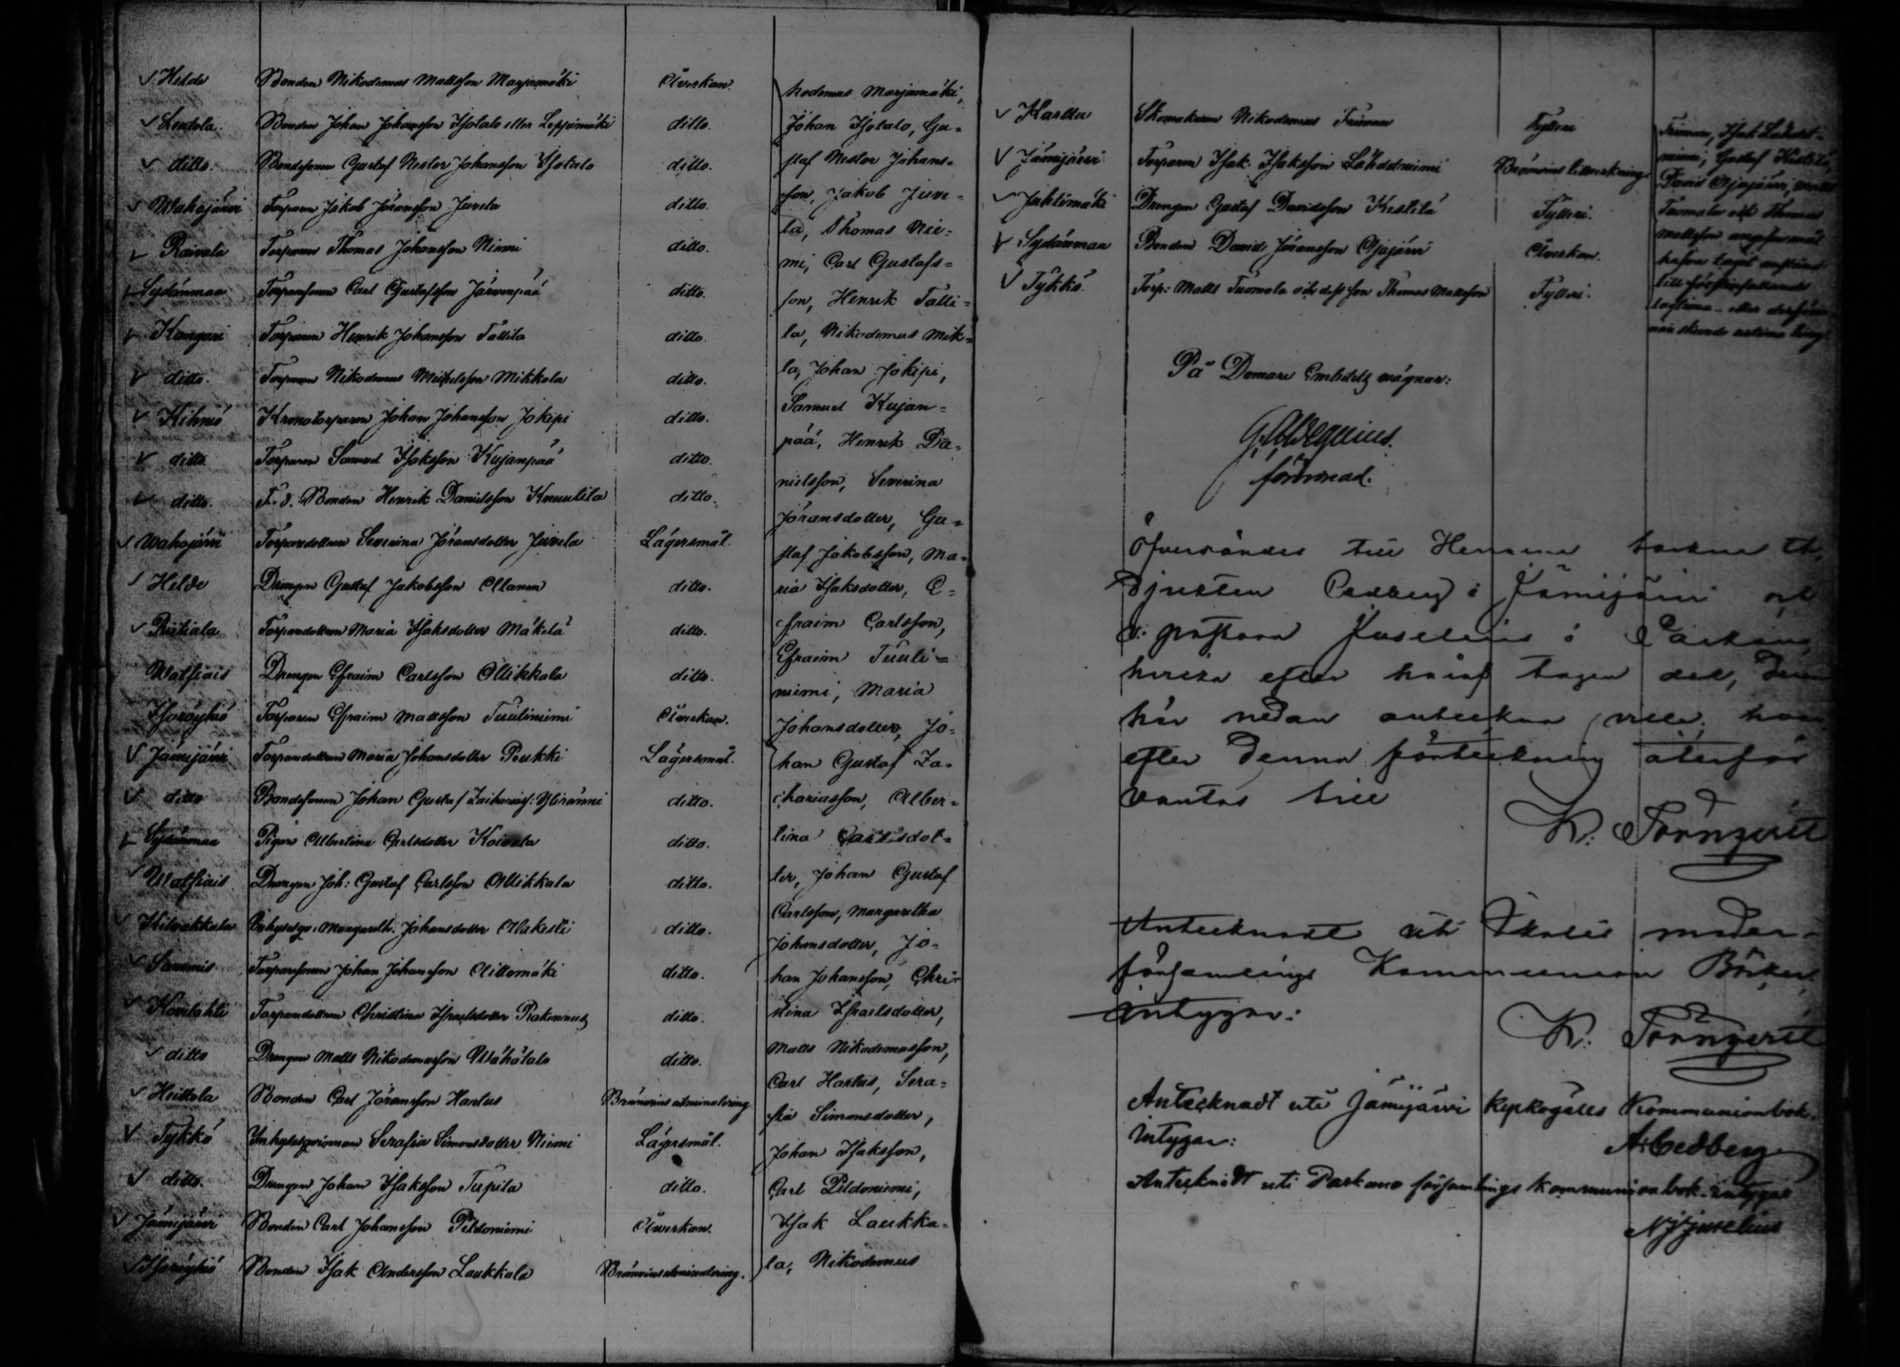 Helde Bonden Nikodemus Mattsson Marjamäki Åverkan.
Leutola Bonden Johan Johansson Isotalo eller Leppimäki ditto.
ditto. Bondesonen Gustaf Nestor Johansson Isotalo ditto.
Wahojärvi Torparen Jakob Göransson Junola ditto.
Raivala Torparen Thomas Johansson Niemi ditto.
Sydänmaa Torparesonen Carl Gustafsson Järvenpää ditto.
Kangari Torparen Henrik Johansson Tallila ditto.
ditto. Torparen Nikodemus Michelsson Mikkola ditto.
Kihniö Kronotorparen Johan Johansson Jokipi ditto.
ditto Torparen Samuel Isaksson Kujanpää ditto.
ditto. F. d. Bonden Henrik Danielsson Knuutila ditto.
Wahojärvi Torparedottren Severina Göransdotter Junola Lägersmål.
Helde Drengen Gustaf Jakobsson Allanen ditto.
Riihiala Torparedottren Maria Isaksdotter Mäkelä ditto.
Watsiais Drengen Efraim Carlsson Ollikkala ditto.
Isoröyhiö Torparen Efraim Mattsson Tuuliniemi Åverkan.
Jämijärvi Torparedottren Maria Johansdotter Peukki Lägersmål.
ditto Bondesonen Johan Gustaf Zachariass: Yliränni ditto.
Sydänmaa Pigan Albertina Carlsdotter Koivula ditto.
Watsiais Drengen Joh: Gustaf Carlsson Ollikkala ditto.
Wilwakkala Inhysesqv: Margareth: Johansdotter Alakoski ditto.
Sammis Torparesonen Johan Johansson Alittomäki ditto.
Kowilahti Torparedottren Christina Israelsdotter Rakennus ditto.
ditto Drengen Matts Nikodemusson Wähätalo ditto.
Heittola Bonden Carl Göransson Hartus Bränvins utminutering
Tykkö Inhysesqvinnan Serafia Simonsdotter Niemi Lägersmål.
ditto. Drengen Johan Isaksson Tupila ditto.
Jämijärvi Bonden Carl Johansson Peldoniemi Åverkan.
Isoröyhiö Bonden Isak Andersson Laukkala Bränvins utminutering.
kodemus Marjamäki,
Johan Isotalo, Gu-
staf Nestor Johans-
son, Jakob Juno-
la, Thomas Nie-
mi, Carl Gustafs-
son, Henrik Talli-
la, Nikodemus Mik-
la, Johan Jokipi,
Samuel Kujan-
pää, Henrik Da-
nielsson, Severina
Göransdotter, Gu-
staf Jakobsson, Ma-
ria Isaksdotter, E-
fraim Carlsson,
Efraim Tuuli-
niemi, Maria
Johansdotter, Jo-
han Gustaf Za-
chariasson, Alber-
tina Carlsdot-
ter, Johan Gustaf
Carlsson, Margaretha
Johansdotter, Jo-
han Johansson, Chri-
stina Israelsdotter,
Matts Nikodemusson,
Carl Hartus, Sera-
fia Simonsdotter,
Johan Isaksson,
Carl Peldoniemi,
Isak Laukka-
la, Nikodemus
Karttu Skomakaren Nikodemus Friman Fylleri
Jämijärvi Torparen Isak Isaksson Lähdeniemi Bränvins tillverkning
Jahtimäki Drengen Gustaf Davidsson Kestilä Fylleri.
Sydänmaa Bonden David Göransson Ojajärvi Åverkan.
Tykkö Torp: Matts Tuomola och dess son Thomas Mattsson Fylleri.
Tuomola och Thomas
Mattsson
På Domare Embetets wägnar:
förordnad.
Öfversändes till Herrarne
i Jämijärvi och
Juselius i Parkano,
efter häraf tagen del,
här nedan anteckna
efter denna förteckning återför
vantas till
K: Törnqvist
Antecknadt uti Ikalis moder-
församlings Kommunion Böcker,
Intygar:
K: Törnqvist
Antecknadt uti Jämijärvi Kyrkogälls Kommunionbok.
Intygar:
A: Cedberg
Antecknadt uti Parkano församlings Kommunionbok. Intygar
Juselius